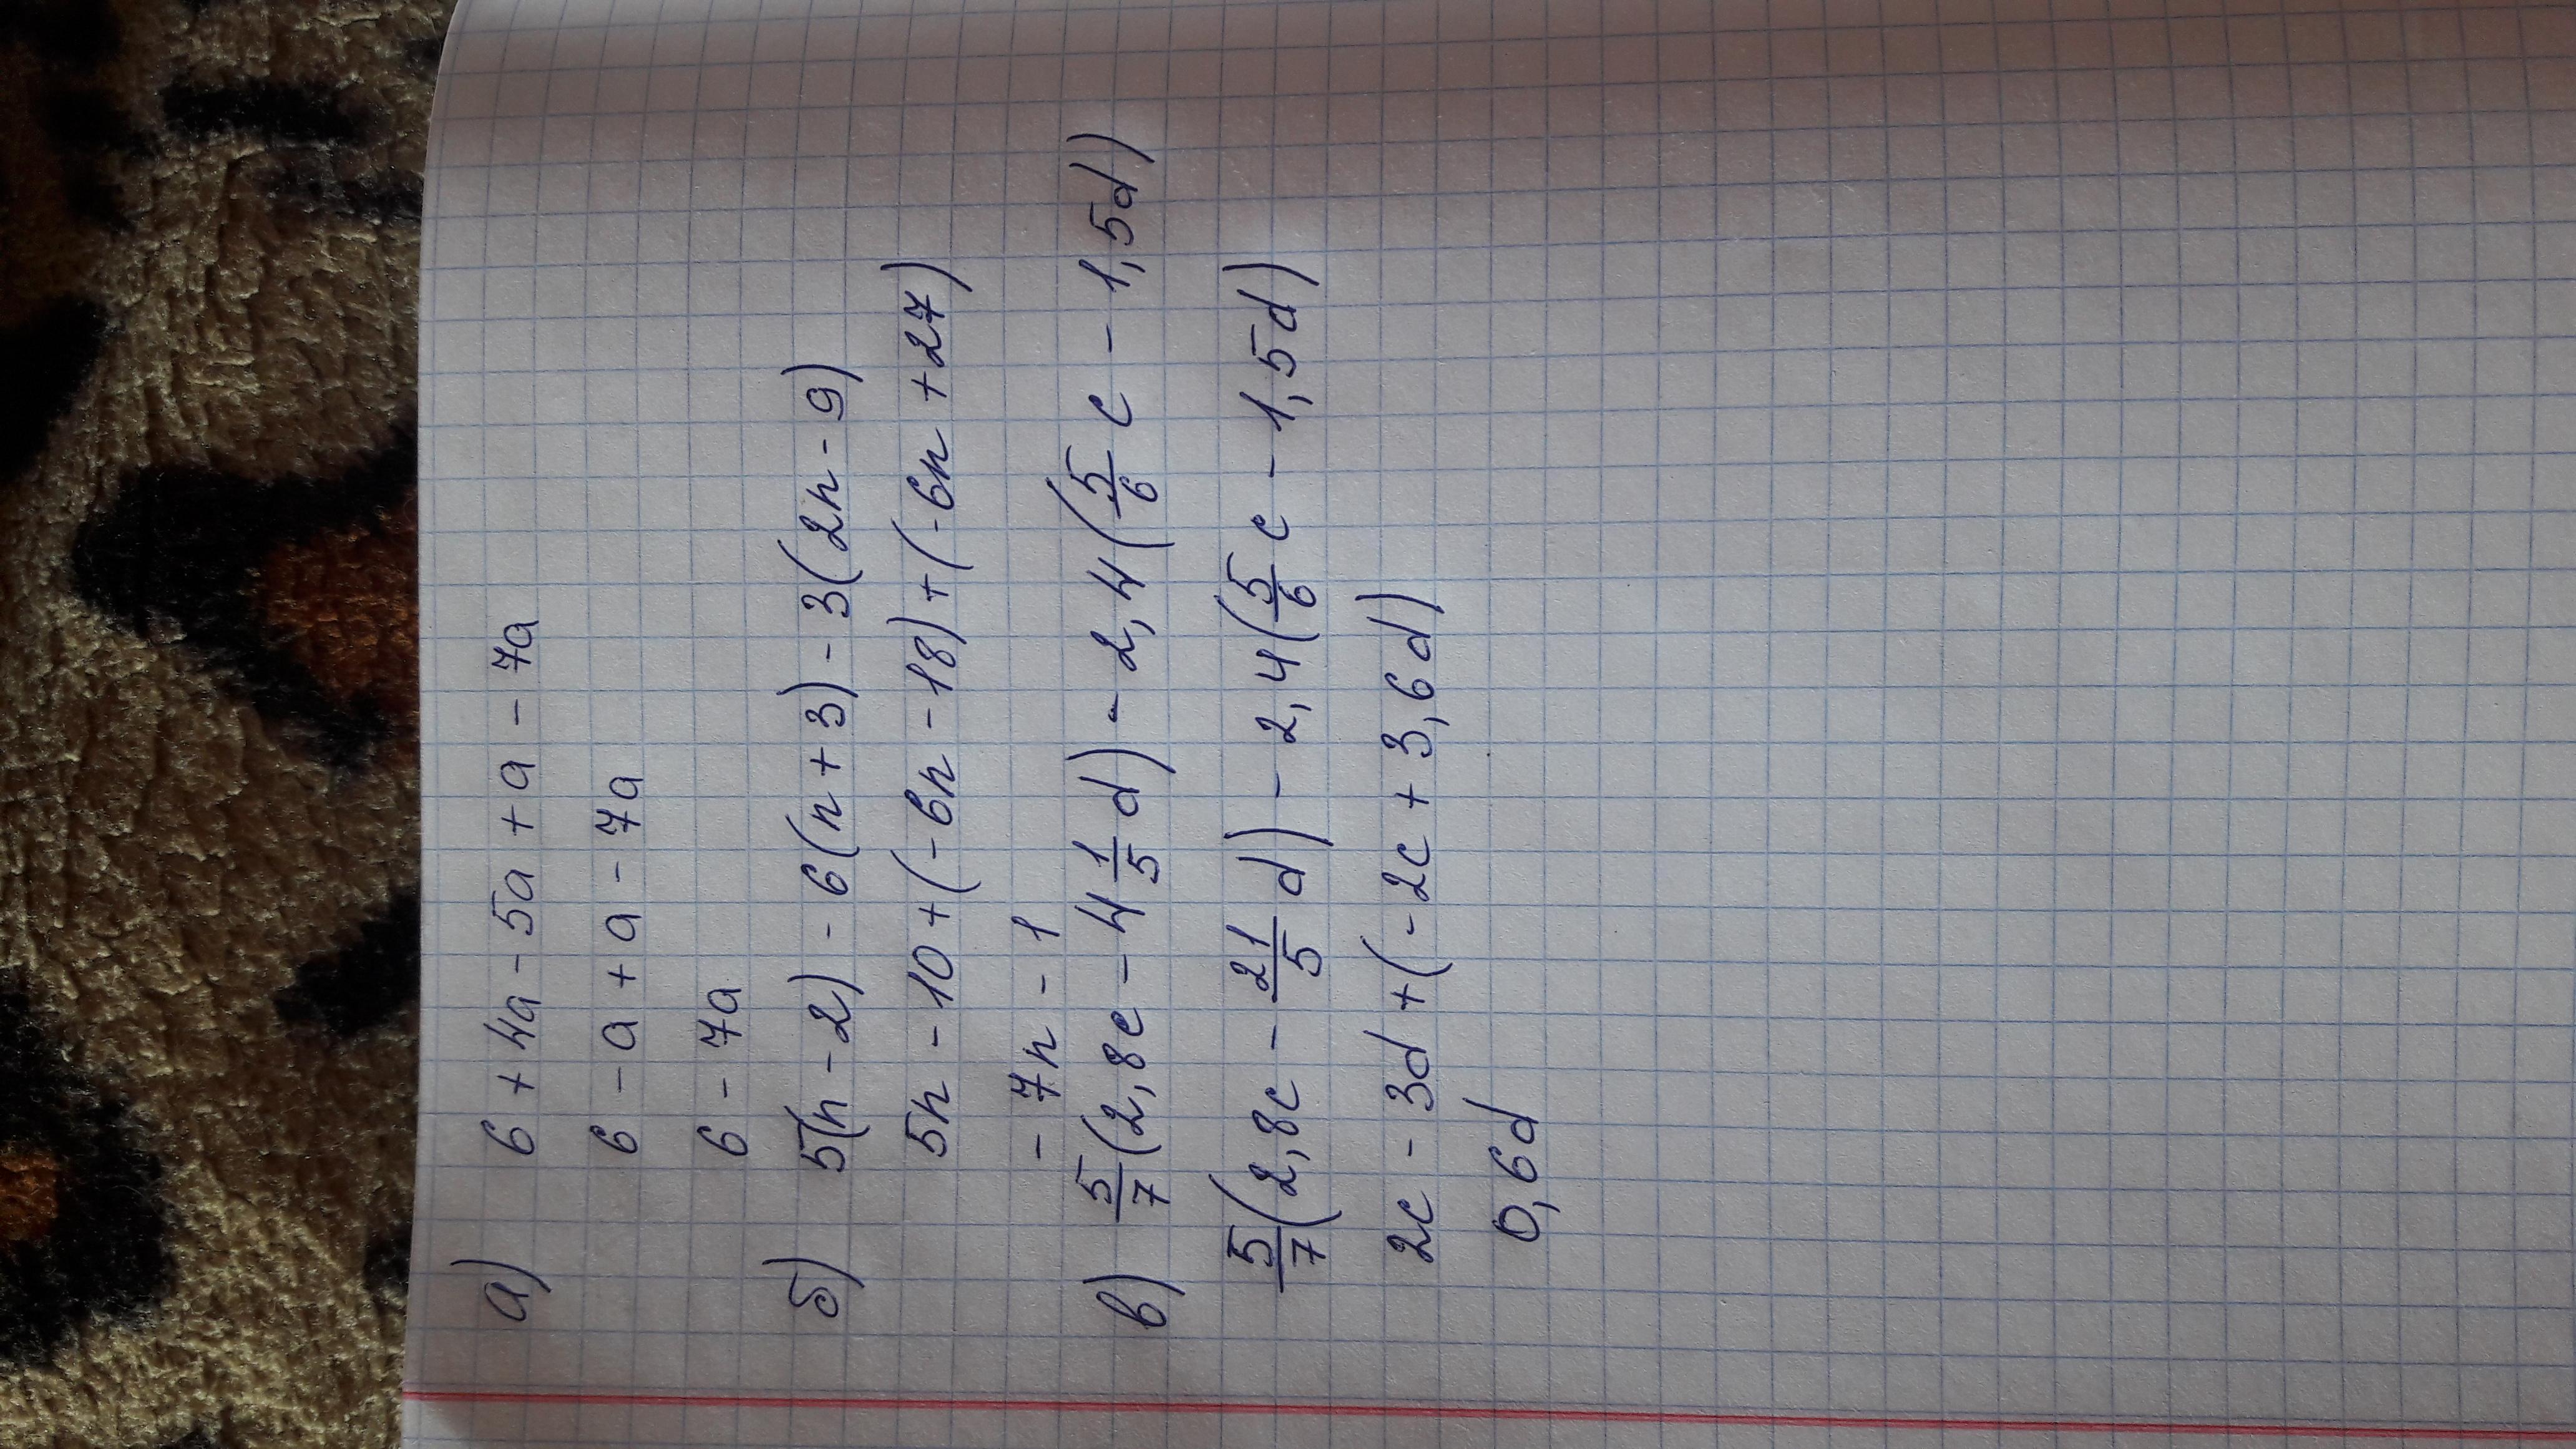 а) 6 + 4a - 5a + a - 7a
6 - a + a - 7a
6 - 7a
б) 5(n - 2) - 6(n + 3) - 3(2n - 9)
5n - 10 + (-6n - 18) + (-6n + 27)
- 7n - 1
в) 5/7(2,8c - 4 1/5 d) - 2,4(5/6 c - 1,5d)
5/7(2,8c - 21/5 d) - 2,4(5/6 c - 1,5d)
2c - 3d + (-2c + 3,6d)
0,6d